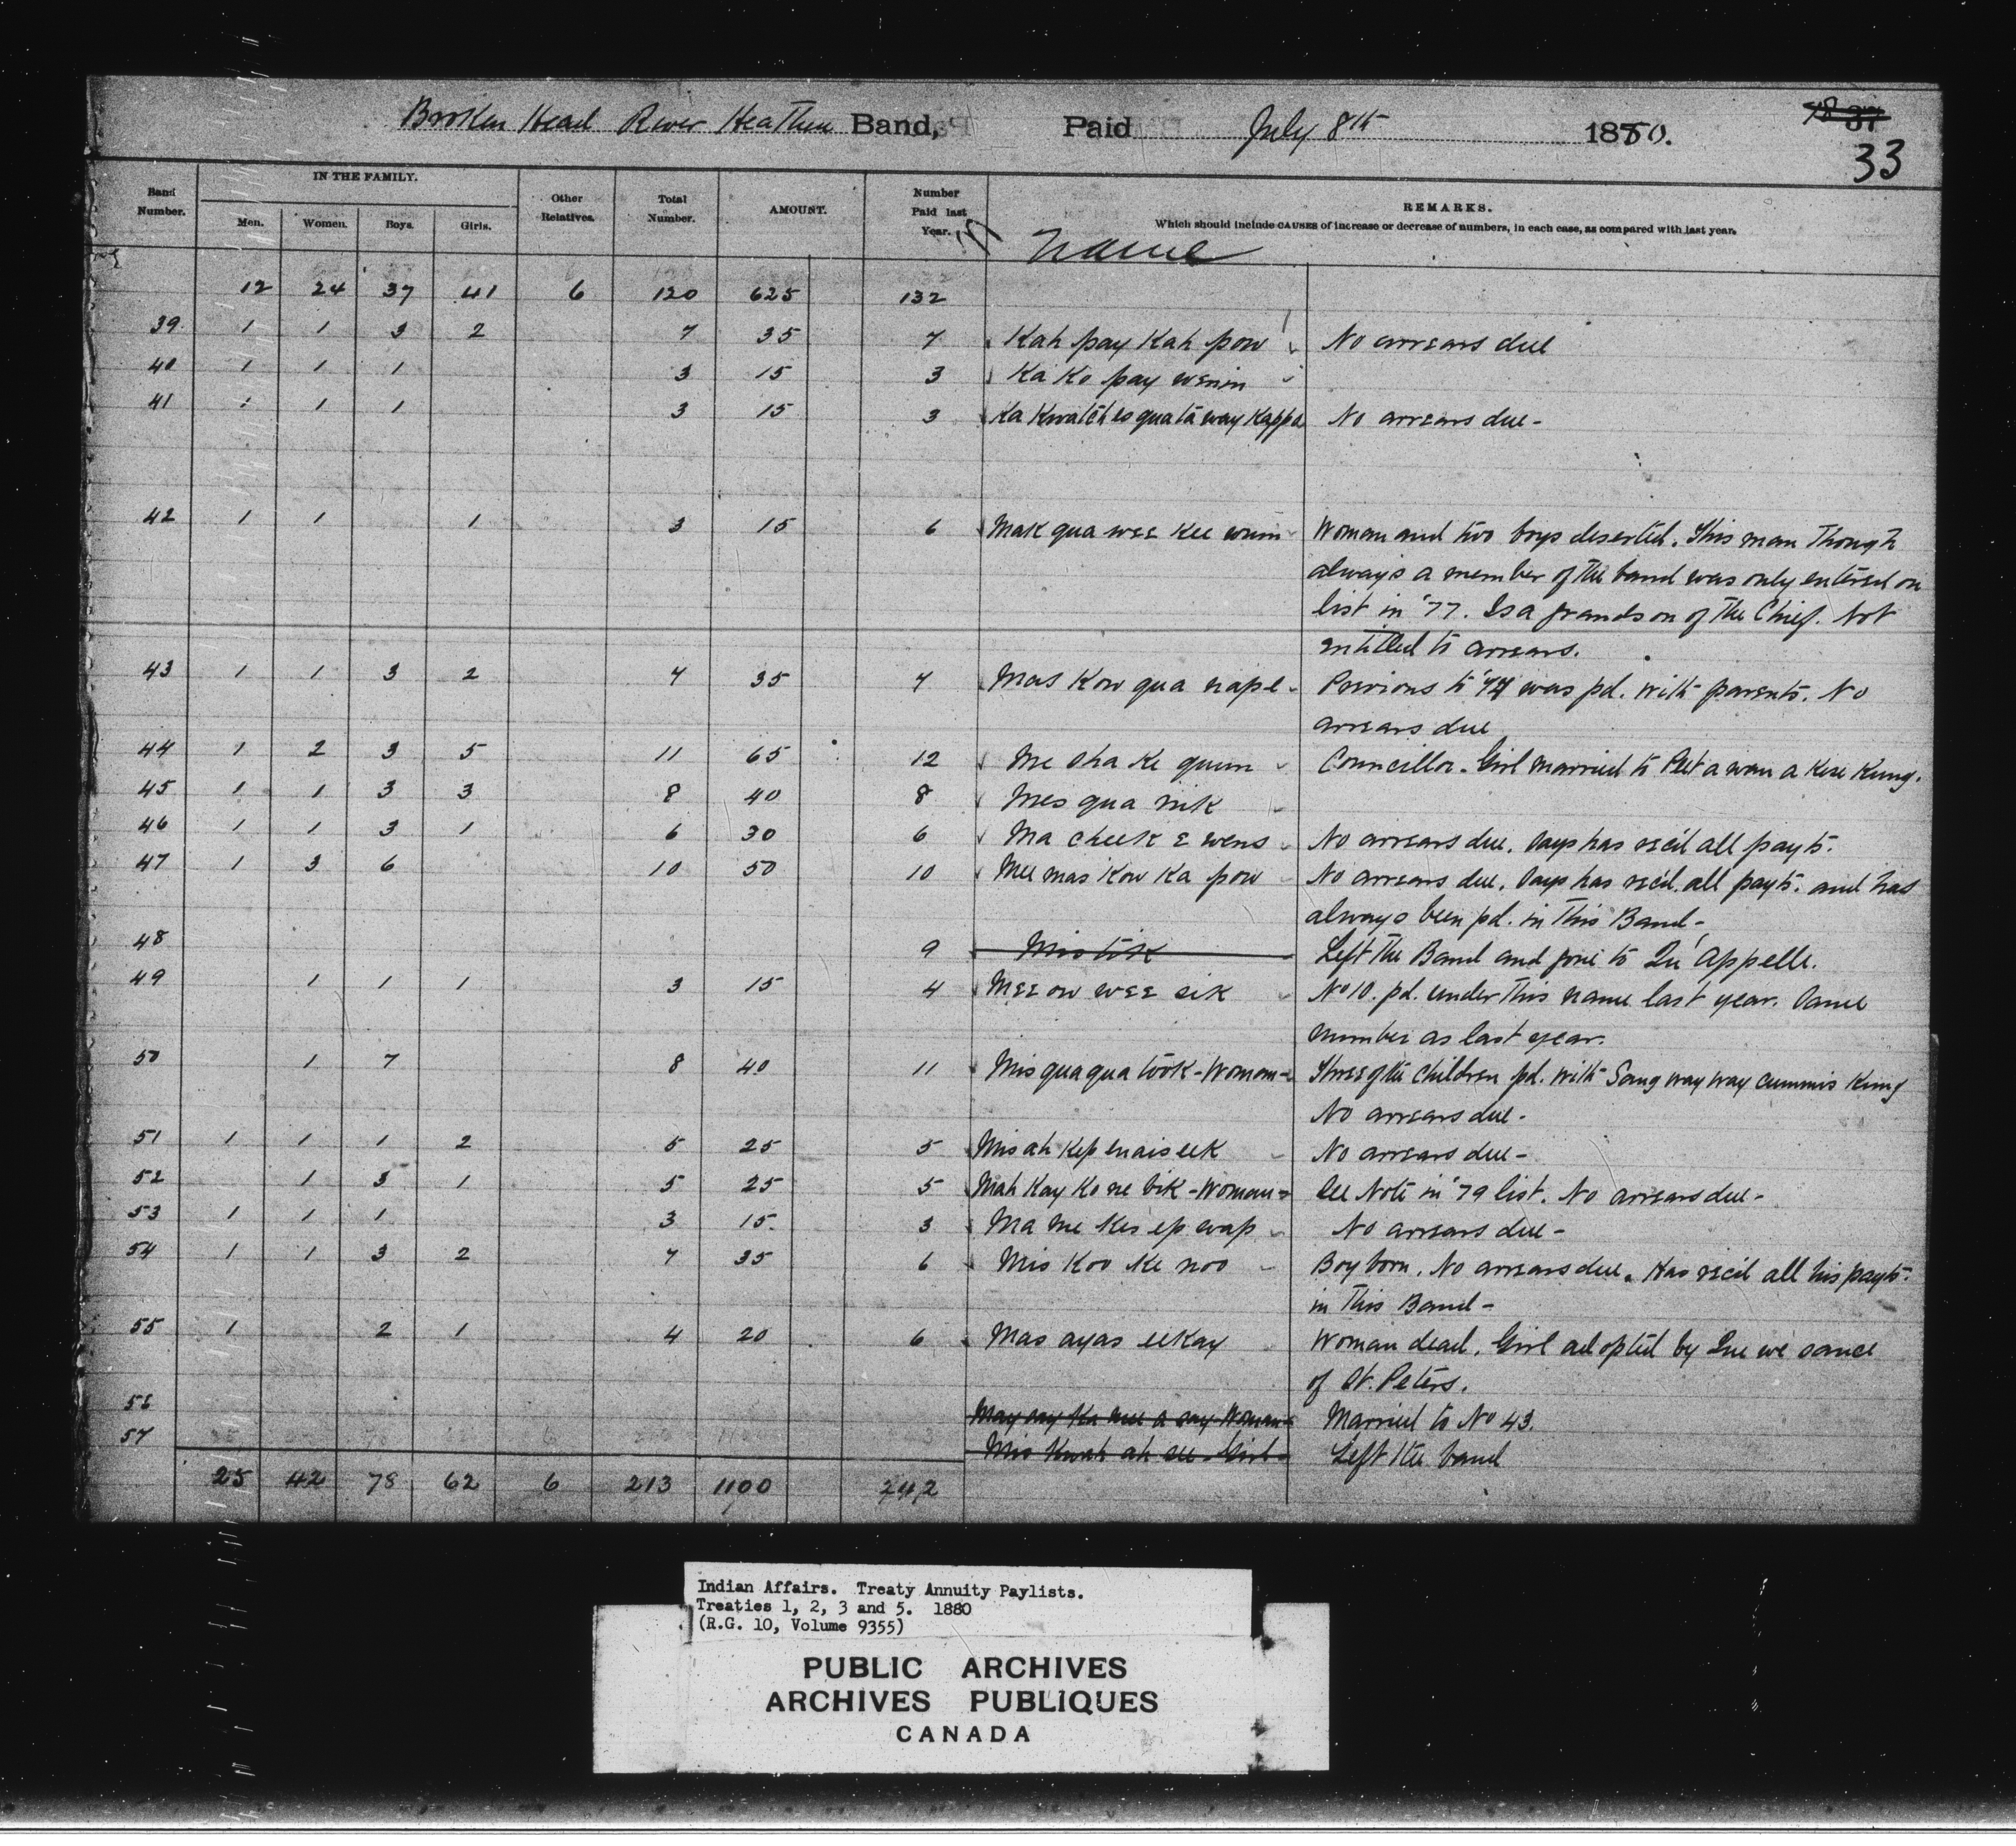 Broken Head River Heathen Band, Paid July 8th 1880.
37
33
Band Number. IN THE FAMILY. Men. Women. Boys. Girls. Other Relatives. Total Number. AMOUNT. Number Paid last Year. REMARKS.
Which should include CAUSES of increase or decrease of numbers, in each case, as compared with last year.
Name
12 24 37 41 6 120 625 132
39 1 1 3 2 7 35 7 Kah pay Kah pow No arrears due
40 1 1 1 3 15 3 Ka Ko pay wenin
41 1 1 1 3 15 3 Ka Kwatch es quata way Kappo No arrears due -
42 1 1 1 3 15 6 Mak qua wee Kee winin Woman and two boys deserted. This man though
always a member of the band was only entered on
list in '77. Is a grandson of the Chief. Not
entitled to arrears.
43 1 1 3 2 7 35 7 Mas Kow qua nape Previous to '77 was pd. with parents. No
arrears due
44 1 2 3 5 11 65 12 Me sha Ke quun Councillor. Girl married to Peet a wan a Kese Kung.
45 1 1 3 3 8 40 8 Mes qua nik
46 1 1 3 1 6 30 6 Ma cheek e wens No arrears due. Says has rec'd all payts.
47 1 3 6 10 50 10 Mee mas Kow Ka pow No arrears due. Says has rec'd. all payts. and has
always been pd. in this Band -
48 9 Mis tik Left the Band and gone to Qu'Appelle.
49 1 1 1 3 15 4 Mee ow wee sik No 10. pd. under this name last year. Same
number as last year.
50 1 7 8 40 11 Mis qua qua took - Woman - Three of the children pd. with Sang way way cummis Kung
No arrears due -
51 1 1 1 2 5 25 5 Mis ah Kep enais eek No arrears due -
52 1 3 1 5 25 5 Mah Kay Ko ne bik - Woman - See Note in '79 list. No arrears due -
53 1 1 1 3 15 3 Ma me Kes ep wap No arrears due -
54 1 1 3 2 7 35 6 Mis Koo Ke noo Boy born. No arrears due. Has rec'd all his payts.
in this Band -
55 1 2 1 4 20 6 Mas ayas eekay Woman dead. Girl adopted by Que we sance
of St. Peters.
56 May say Ka mee a say Woman Married to No 43.
57 Mis Kwah ah see - Girl - Left the band
25 42 78 62 6 213 1100 242
Indian Affairs. Treaty Annuity Paylists.
Treaties 1, 2, 3 and 5. 1880
(R.G. 10, Volume 9355)
PUBLIC ARCHIVES
ARCHIVES PUBLIQUES
CANADA